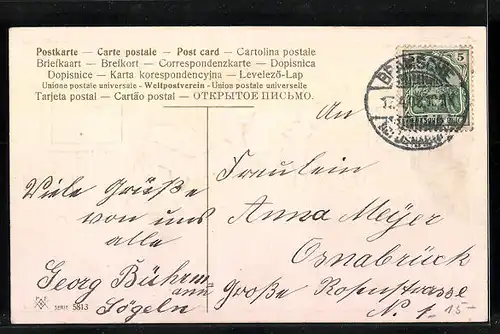 Postkarte — Carte postale — Post card — Cartolina postale
Briefkaart — Brefkort — Correspondenzkarte — Dopisnica
Dopisnice — Karta korespondencyjna — Levelező-Lap
Unione postale universale - Weltpostverein - Union postale universelle
Tarjeta postal — Cartão postal — ОТКРЫТОЕ ПИСЬМО.
5
An
Fraulein
Anna Meyer
Osnabrück
Große Rosenstrasse
N. 1
15-
Viele Grüße
von uns
alle
Georg Bührm-
ann
Sögeln
SERIE 5813